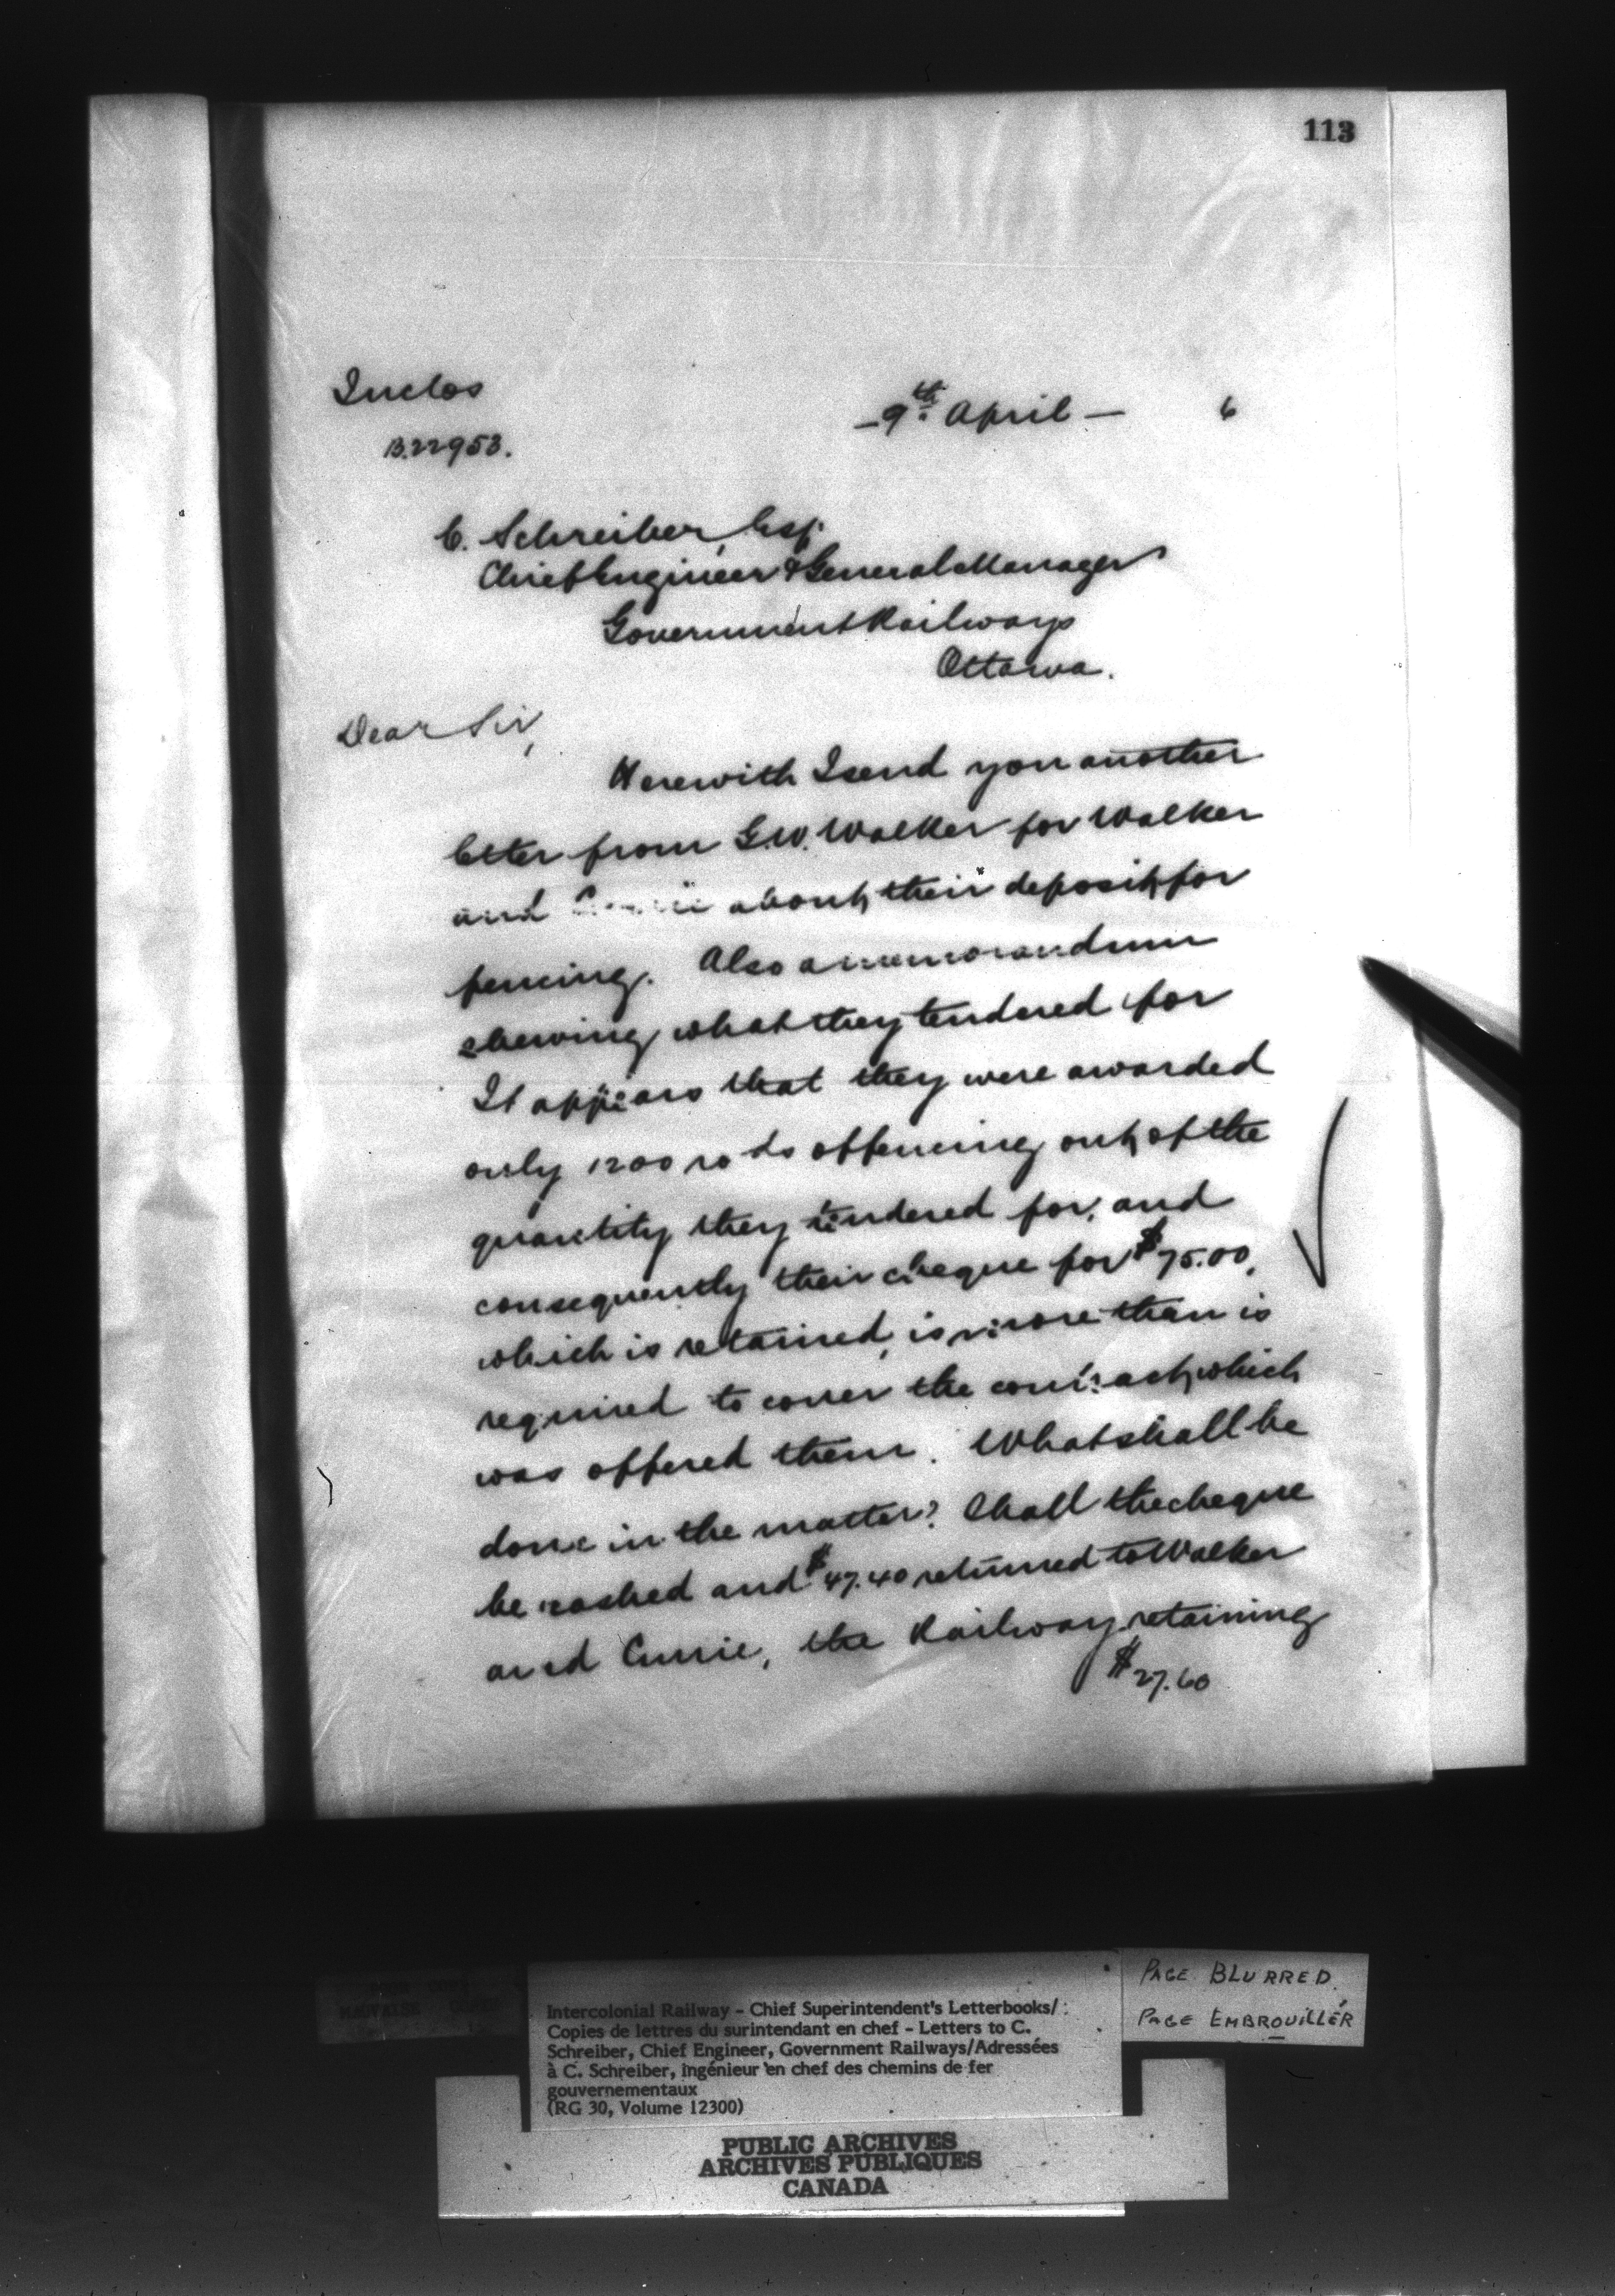 113
Inclos
B.22953.
- 9th April - 6
C. Schreiber, Esq.
Chief Engineer & General Manager
Government Railways
Ottawa.
Dear Sir,
Herewith I send you another
letter from G.W. Walker for Walker
and about their deposit for
fencing. Also a memorandum
shewing what they tendered for
It appears that they were awarded
only 1200 rods of fencing out of the
quantity they tendered for, and
consequently their cheque for $75.00,
which is retained, is more than is
required to cover the contract which
was offered them. What shall be
done in the matter? Shall the cheque
be cashed and $47.40 returned to Walker
and Currie, the Railway retaining
$27.60
Intercolonial Railway - Chief Superintendent's Letterbooks/
Copies de lettres du surintendant en chef - Letters to C.
Schreiber, Chief Engineer, Government Railways/Adressées
à C. Schreiber, ingénieur en chef des chemins de fer
gouvernementaux
(RG 30, Volume 12300)
PAGE BLURRED
PAGE EMBROUILLÉR
PUBLIC ARCHIVES
ARCHIVES PUBLIQUES
CANADA